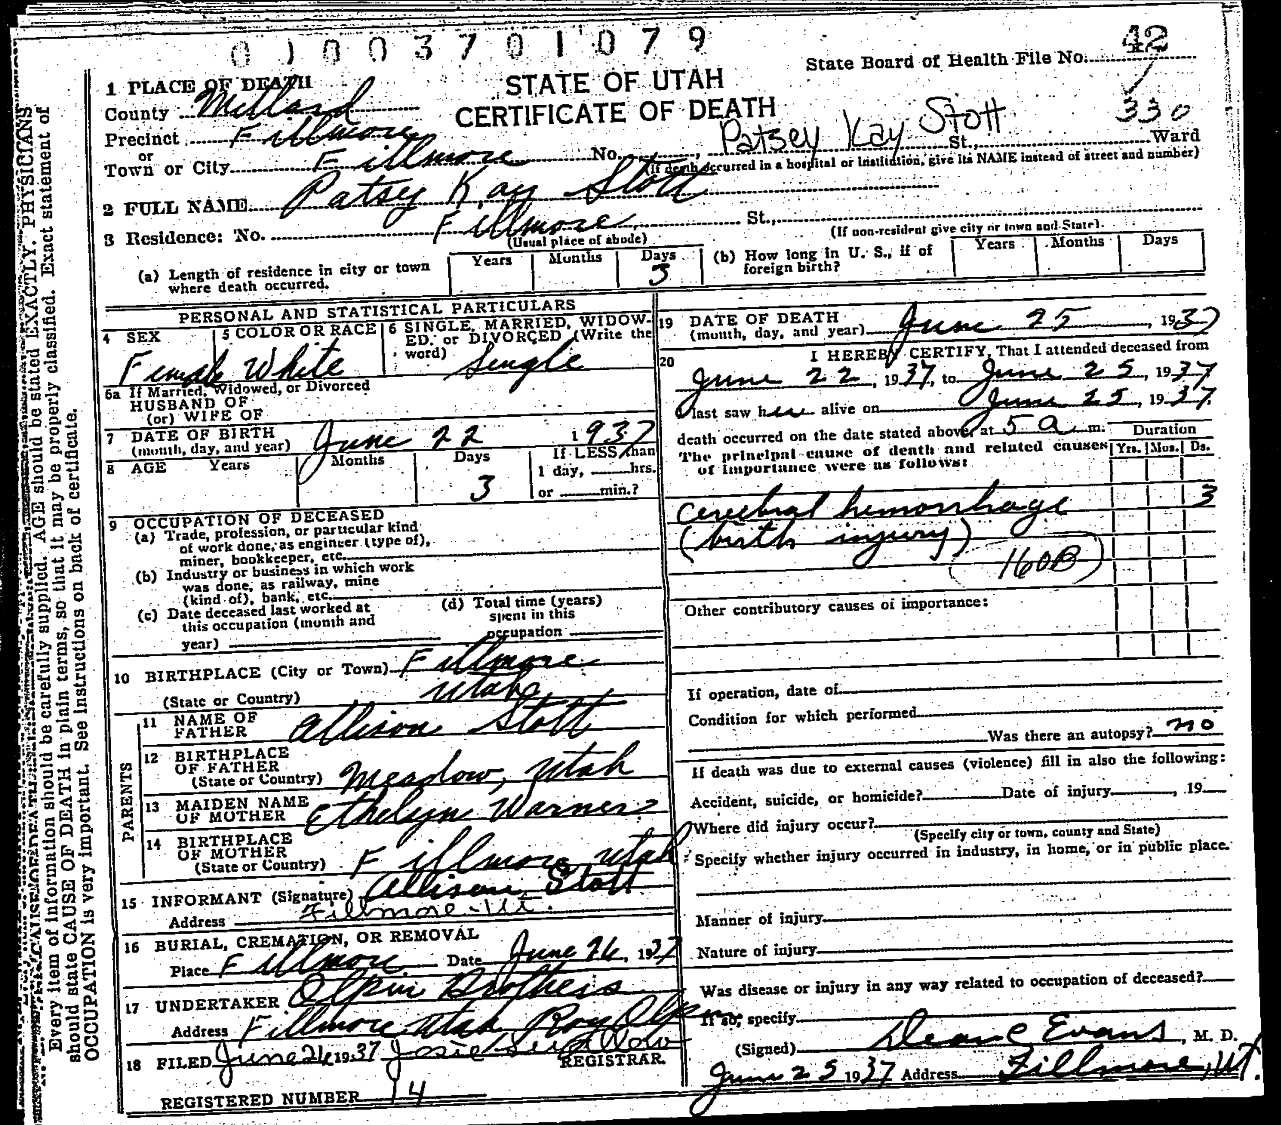 0100370 1079
State Board of Health File No. 42
STATE OF UTAH
CERTIFICATE OF DEATH
330
1 PLACE OF DEATH
County Millard
Precinct Fillmore
or
Town or City Fillmore No. Patsey Kay Stott St., Ward
(If death occurred in a hospital or institution, give its NAME instead of street and number)
2 FULL NAME Patsy Kay Stott
3 Residence: No. Fillmore, St.,
(Usual place of abode) (If non-resident give city or town and State).
(a) Length of residence in city or town where death occurred. Years Months Days 3 (b) How long in U. S., if of foreign birth? Years Months Days
PERSONAL AND STATISTICAL PARTICULARS
4 SEX Female
5 COLOR OR RACE White
6 SINGLE, MARRIED, WIDOWED, or DIVORCED (Write the word) Single
6a If Married, Widowed, or Divorced
HUSBAND OF
(or) WIFE OF
7 DATE OF BIRTH (month, day, and year) June 22 1937
8 AGE Years Months Days 3 If LESS than 1 day, hrs. or min.?
9 OCCUPATION OF DECEASED
(a) Trade, profession, or particular kind
of work done, as engineer (type of),
miner, bookkeeper, etc.
(b) Industry or business in which work
was done, as railway, mine
(kind of), bank, etc.
(c) Date deceased last worked at
this occupation (month and
year)
(d) Total time (years)
spent in this
occupation
10 BIRTHPLACE (City or Town) Fillmore
(State or Country) Utah
PARENTS
11 NAME OF FATHER Allison Stott
12 BIRTHPLACE OF FATHER (State or Country) Meadow, Utah
13 MAIDEN NAME OF MOTHER Ethelyn Warner
14 BIRTHPLACE OF MOTHER (State or Country) Fillmore, Utah
15 INFORMANT (Signature) Allison Stott
Address Fillmore - Ut.
16 BURIAL, CREMATION, OR REMOVAL
Place Fillmore Date June 26, 1937
17 UNDERTAKER Olpin Brothers
Address Fillmore Utah Roy Olpin
18 FILED June 26 1937 Josie Swallow
REGISTRAR.
REGISTERED NUMBER 14
19 DATE OF DEATH (month, day, and year) June 25, 1937
20 I HEREBY CERTIFY, That I attended deceased from
June 22, 1937, to June 25, 1937
I last saw her alive on June 25, 1937.
death occurred on the date stated above, at 5 a. m. Duration
The principal cause of death and related causes of importance were as follows: Yrs. Mos. Ds.
Cerebral hemorrhage 3
(birth injury)
160B
Other contributory causes of importance:
If operation, date of
Condition for which performed
Was there an autopsy? no
If death was due to external causes (violence) fill in also the following:
Accident, suicide, or homicide? Date of injury , 19
Where did injury occur?
(Specify city or town, county and State)
Specify whether injury occurred in industry, in home, or in public place.
Manner of injury
Nature of injury
Was disease or injury in any way related to occupation of deceased?
If so, specify
(Signed) Dean C Evans, M. D.
June 25 1937 Address Fillmore, Ut.
Every item of information should be carefully supplied. AGE should be stated EXACTLY. PHYSICIANS
should state CAUSE OF DEATH in plain terms, so that it may be properly classified. Exact statement of
OCCUPATION is very important. See instructions on back of certificate.